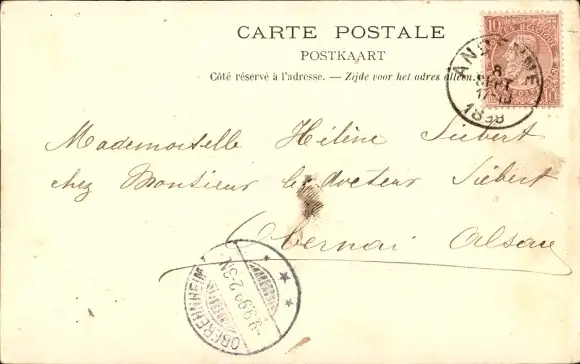 CARTE POSTALE
POSTKAART
Côté réservé à l'adresse. — Zijde voor het adres alleen.
10 10
ANDENNE
8
SEPT
1898
Mademoiselle Hélène Siebert
chez Monsieur le docteur Siebert
Obernai Alsace
OBEREHNHEIM
2-3N